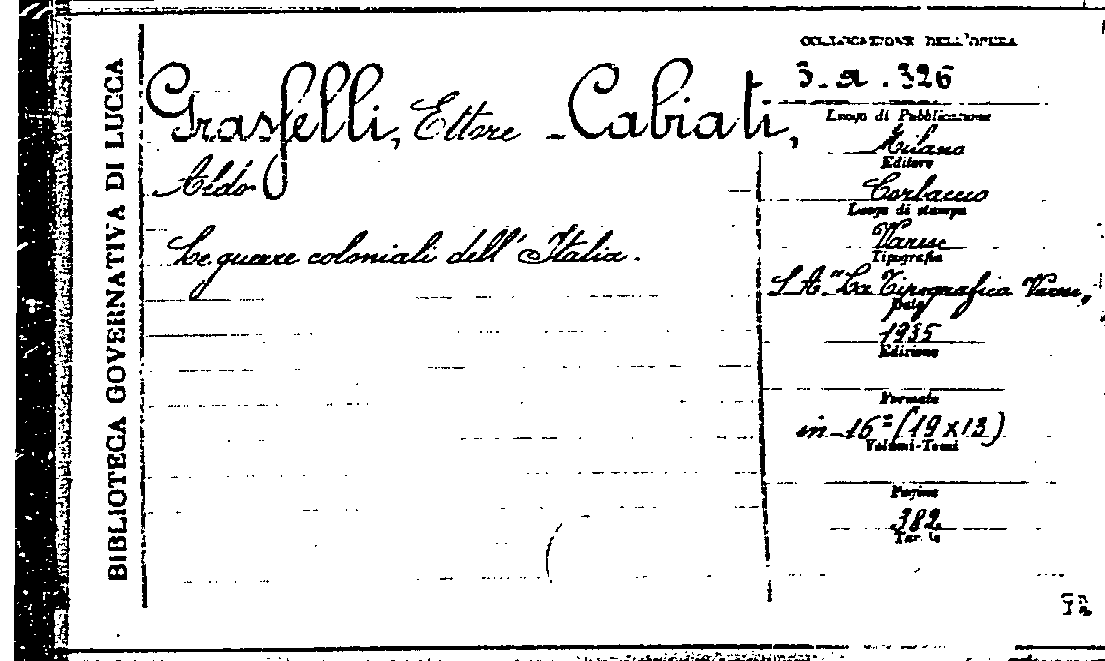 BIBLIOTECA GOVERNATIVA DI LUCCA
Grasselli, Ettore - Cabiati,
Aldo
Le guerre coloniali dell'Italia.
COLLOCAZIONE DELL'OPERA
3. a. 326
Luogo di Pubblicazione
Milano
Editore
Corbaccio
Luogo di stampa
Varese
Tipografia
S. A. "La Tipografica Varese,,
Data
1935
Edizione
Formato
in-16º (19x13)
Volumi-Tomi
Pagine
382
Tavole